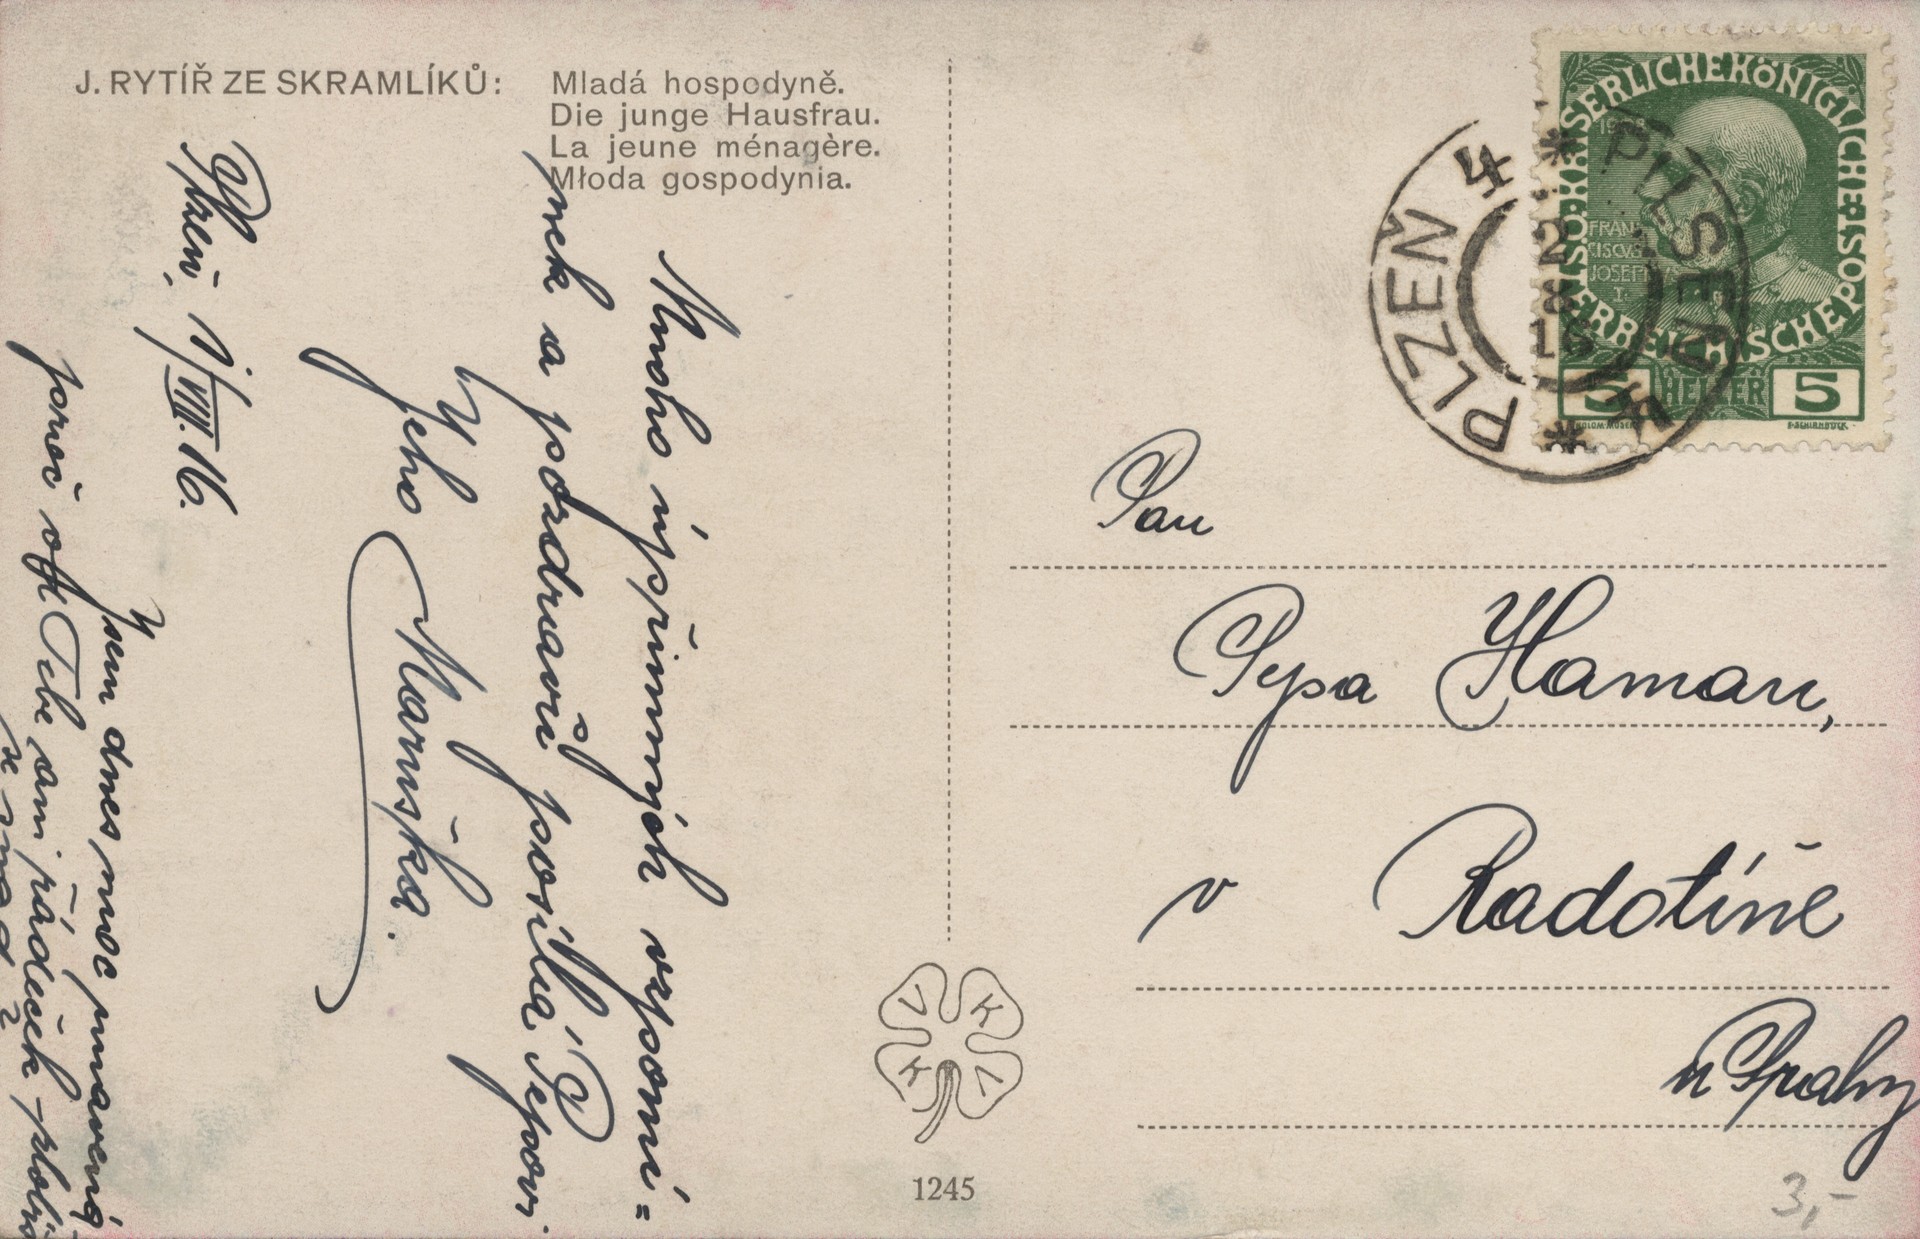 J. RYTÍŘ ZE SKRAMLÍKŮ:
Mladá hospodyně.
Die junge Hausfrau.
La jeune ménagère.
Młoda gospodynia.
Plzeň, 1/VIII. 16.
Mnoho upřímných vzpomí=
nek a pozdravů posílá Pepovi
Jeho Maruška.
Jsem dnes moc
proč od Tebe ani řádeček
PLZEŇ 4 * PILSEN 4 *
2
8
16
KAISERLICHE KÖNIGLICHE
ÖSTERREICHISCHE POST
1908
FRAN
CISCVS
JOSEPHVS
I.
5 HELLER 5
KOLOM·MOSER
F·SCHIRNBÖCK
Pan
Pepa Haman,
v Radotíně
u Prahy
V K
K V
1245
3,-